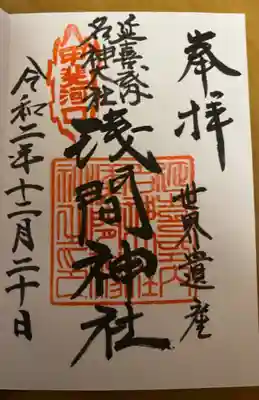 奉拝
世界遺産
延喜式
名神大社
甲斐国
浅間神社
令和二年十二月二十日